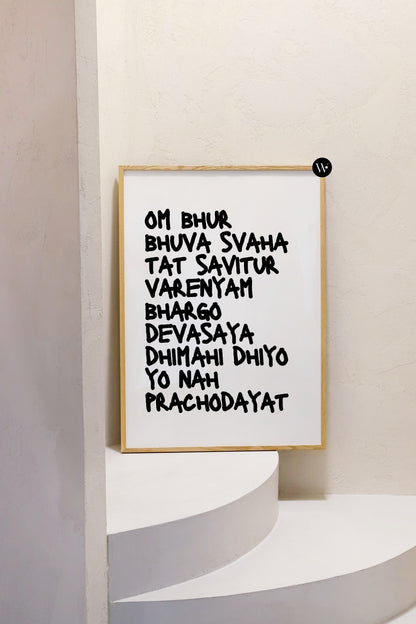 W.
OM BHUR
BHUVA SVAHA
TAT SAVITUR
VARENYAM
BHARGO
DEVASAYA
DHIMAHI DHIYO
YO NAH
PRACHODAYAT